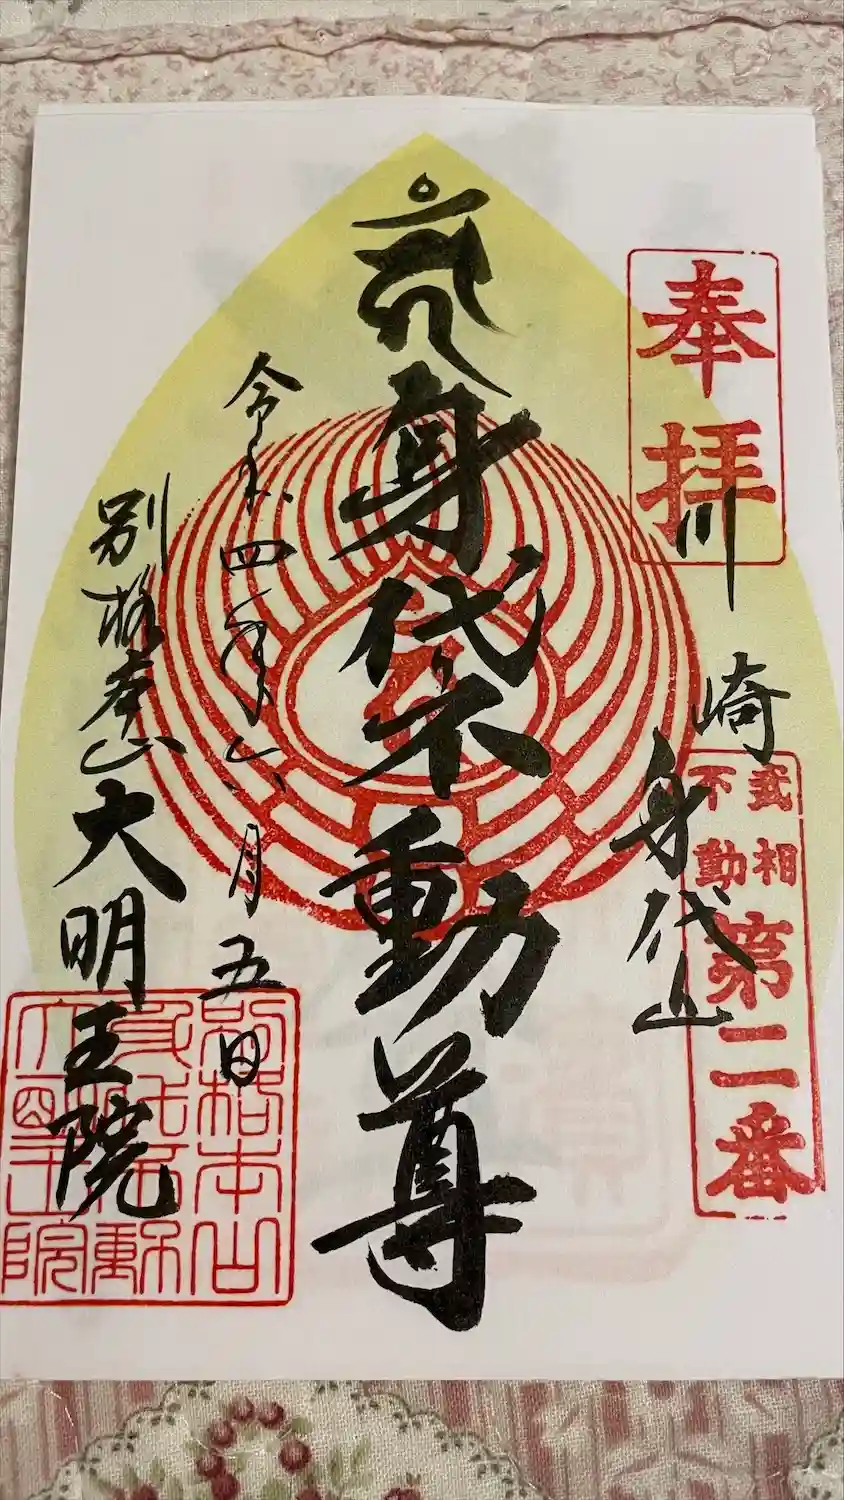 奉拝
川崎
身代山
武相
不動
第二番
身代不動尊
令和四年六月五日
別格本山大明王院
別格本山
身代不動
大明王院